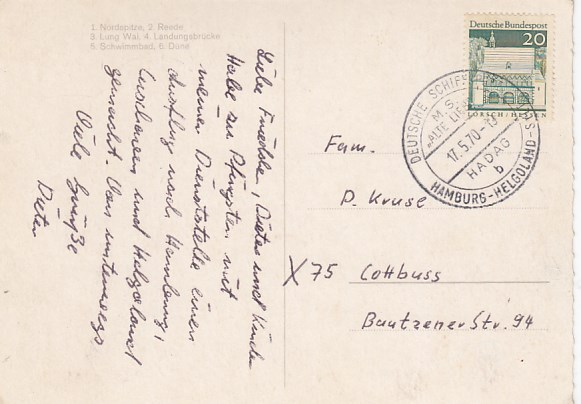 1. Nordspitze, 2. Reede
3. Lung Wai, 4. Landungsbrücke
5. Schwimmbad, 6. Düne
Liebe Friedchen, Dieter und Kinder
Habe zu Pfingsten mit
meiner Dienststelle einen
Ausflug nach Hamburg,
Cuxhaven und Helgoland
gemacht. Von unterwegs
Viele Grüße
Dieter
Deutsche Bundespost
20
LORSCH/HESSEN
DEUTSCHE SCHIFFSPOST
M.S.
"ALTE LIEBE"
17.5.70-13
HADAG
b
HAMBURG-HELGOLAND
Fam.
P. Kruse
X 75 Cottbuss
Bautzener Str. 94